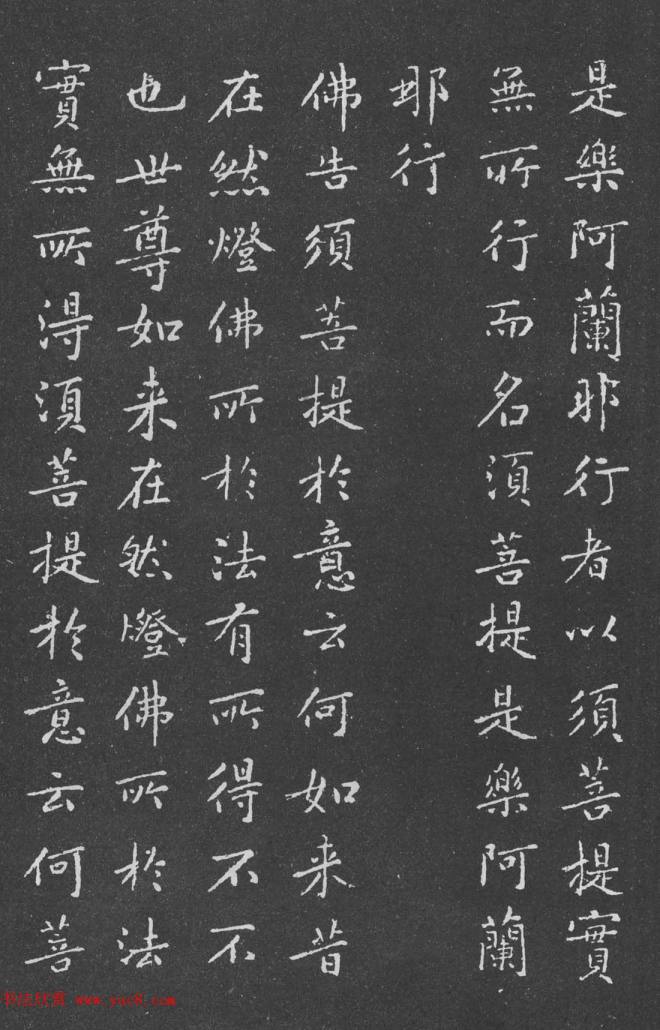 是樂阿蘭那行者以須菩提實
無所行而名須菩提是樂阿蘭
那行
佛告須菩提於意云何如来昔
在然燈佛所於法有所得不不
也世尊如来在然燈佛所於法
實無所得須菩提於意云何菩
书法欣赏 www.yac8.com